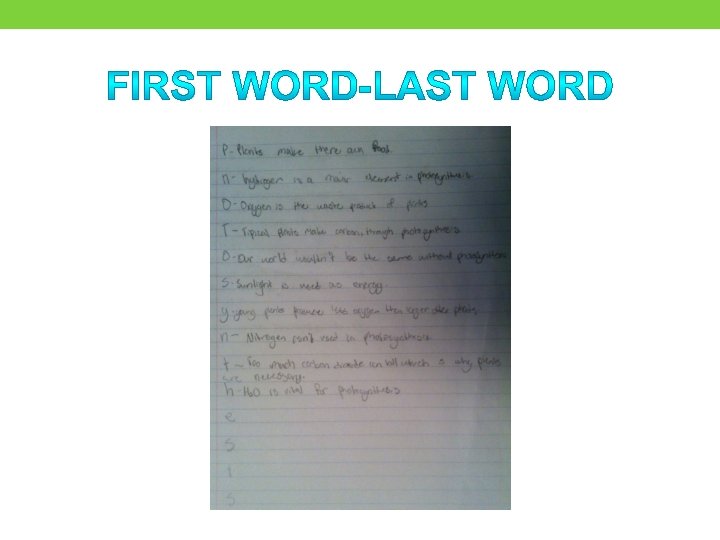 FIRST WORD-LAST WORD
P- Plants make there own food.
h- hydrogen is a major element in photosynthesis
O- Oxygen is the waste product of plants
T- Typical plants make carbon, through photosynthesis
O- Our world wouldn't be the same without photosynthesis
S- Sunlight is used as energy.
y- young plants produce less oxygen then larger older plants.
n- Nitrogen isn't used in photosynthesis
t- Too much carbon dioxide can kill which is why plants
are necessary.
h- H2O is vital for photosynthesis
e
s
i
s